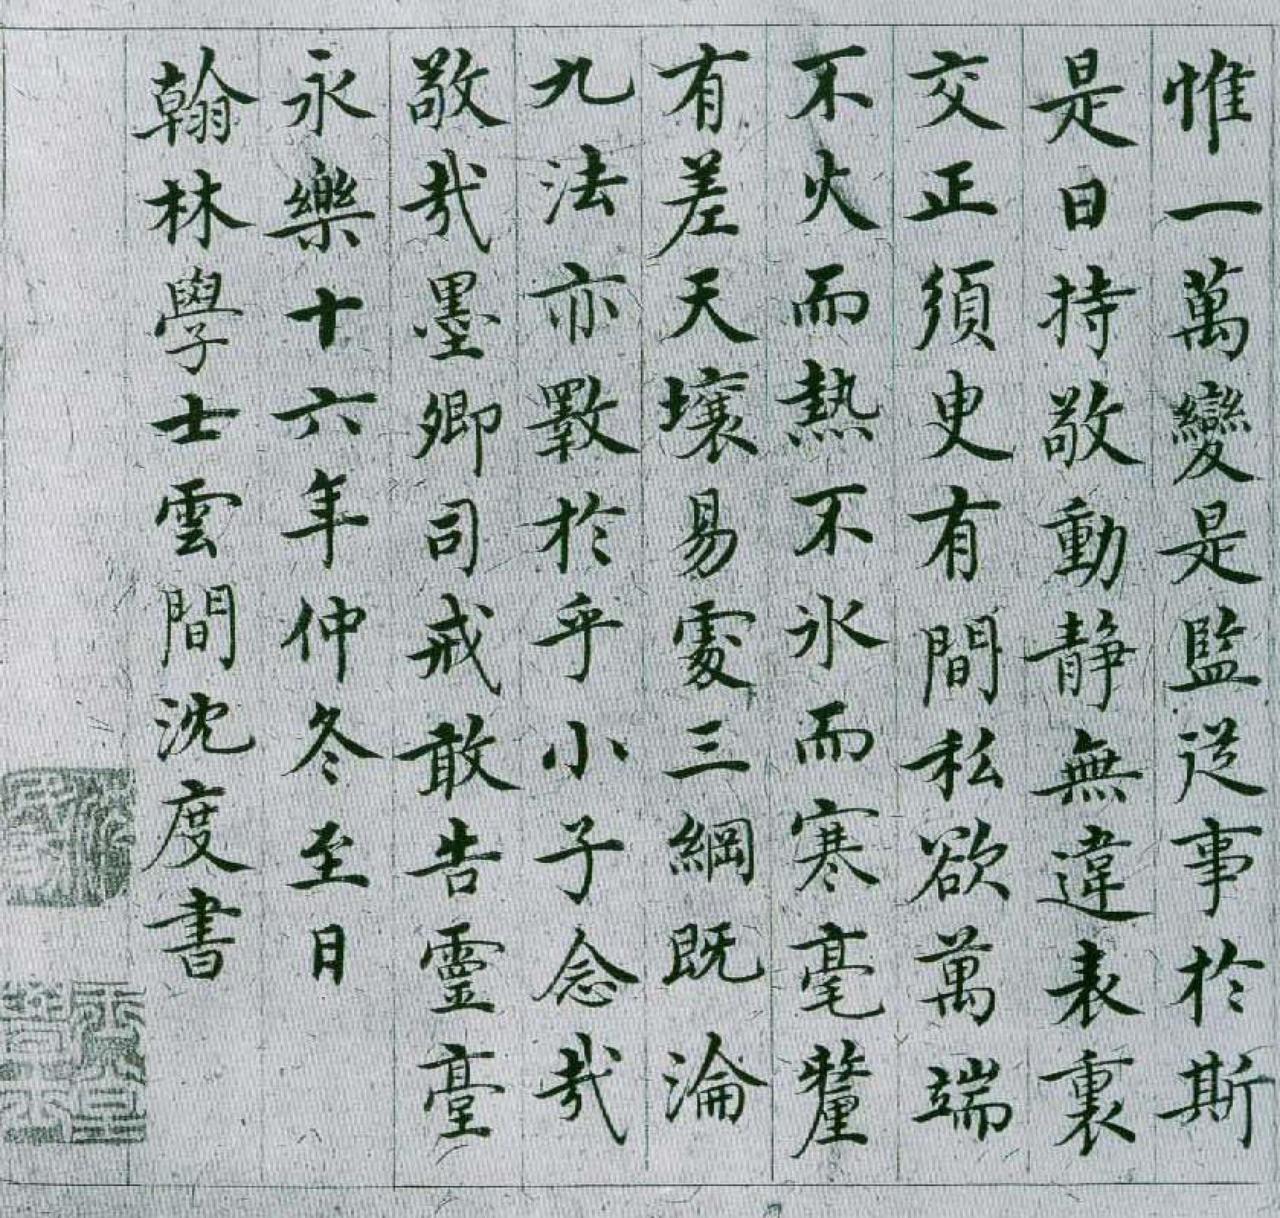 惟一萬變是監従事於斯
是日持敬動静無違表裏
交正須臾有間私欲萬端
不火而熱不氷而寒毫釐
有差天壤易處三綱既淪
九法亦斁於乎小子念哉
敬哉墨卿司戒敢告靈臺
永樂十六年仲冬至日
翰林學士雲間沈度書